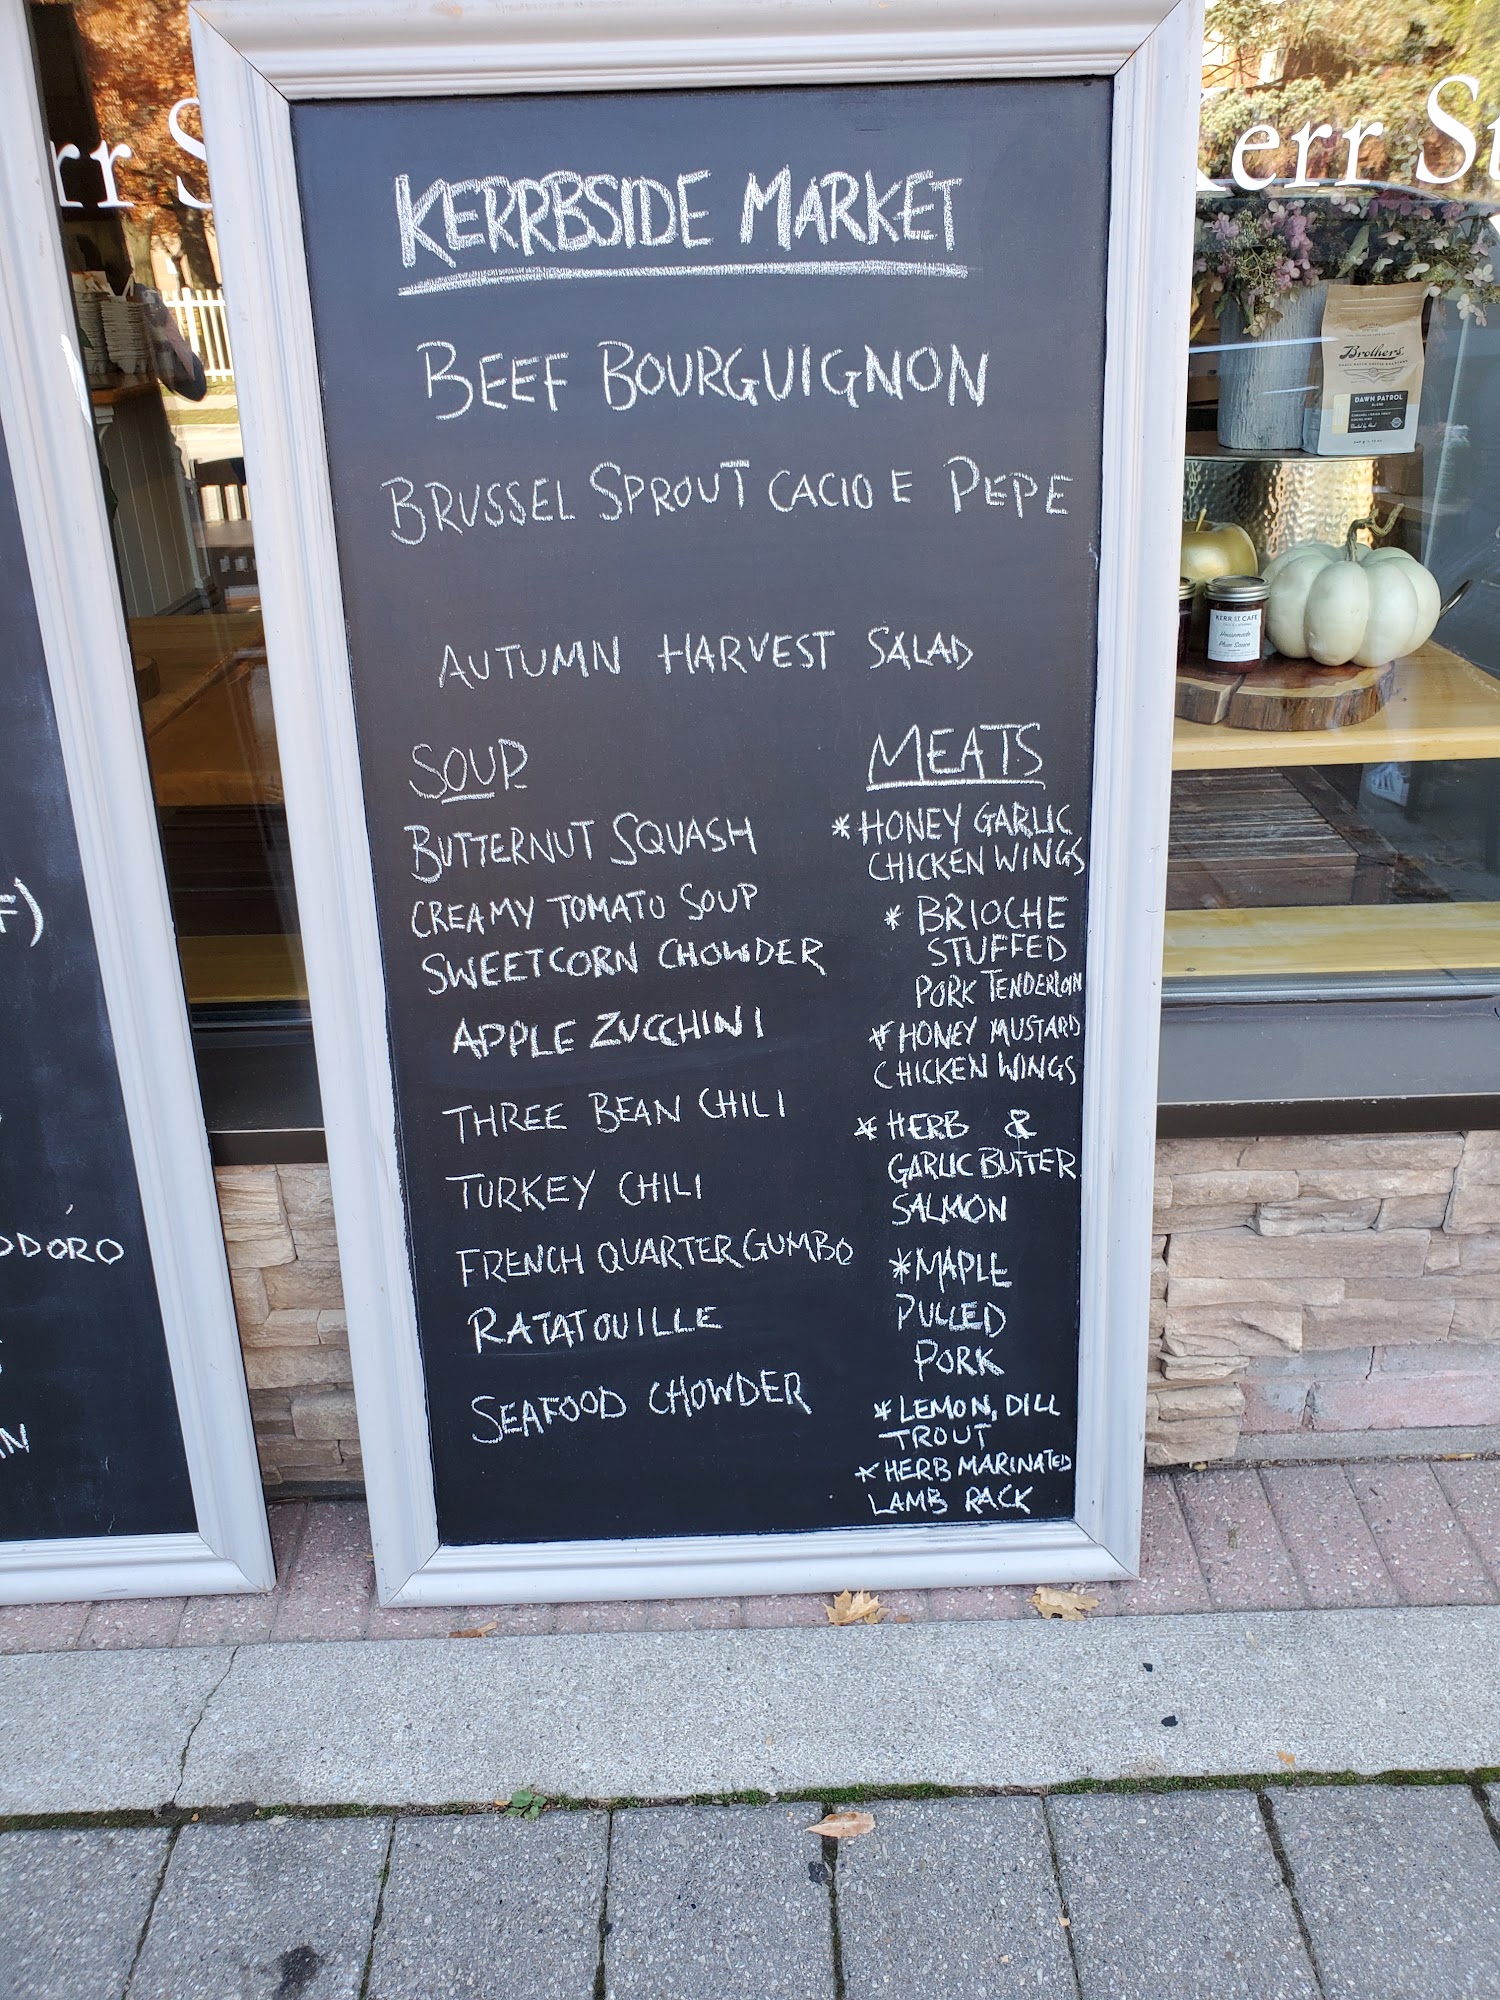 KERRBSIDE MARKET
BEEF BOURGUIGNON
BRUSSEL SPROUT CACIO E PEPE
AUTUMN HARVEST SALAD
SOUP
BUTTERNUT SQUASH
CREAMY TOMATO SOUP
SWEETCORN CHOWDER
APPLE ZUCCHINI
THREE BEAN CHILI
TURKEY CHILI
FRENCH QUARTER GUMBO
RATATOUILLE
SEAFOOD CHOWDER
MEATS
*HONEY GARLIC
CHICKEN WINGS
* BRIOCHE
STUFFED
PORK TENDERLOIN
* HONEY MUSTARD
CHICKEN WINGS
* HERB &
GARLIC BUTTER
SALMON
*MAPLE
PULLED
PORK
* LEMON, DILL
TROUT
* HERB MARINATED
LAMB RACK
rr S
Kerr St
Brothers
DAWN PATROL
KERR ST. CAFE
Homemade
Plum Sauce
F)
ODORO
AN